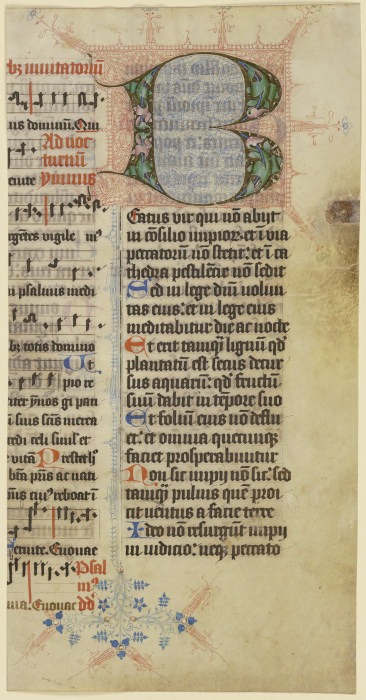 bz inuitatoriu
us dominu. Qui
Ad noc
turnu
ymnus
enite
rgentes vigile
in psalmis medi
bz totis domino
Ut
pio re
iter ymos gi pan
vita Presta
bta piis ac nati
enite. Euouae
Psal
ma. Euouae dd
Beatus vir qui no abijt
in cosilio impior. et i via
peccatoru no stetit: et i ca
thedra pestilecie no sedit
Sed in lege dni volun
tas eius: et in lege eius
meditabitur die ac nocte
Et erit tamq lignum qd
plantatu est secus decur
sus aquaru: qd fructum
suum dabit in tepore suo
Et folium eius no deflu
et: et omnia quecumq
faciet prosperabuntur
Non sic impij no sic: sed
tamq puluis que proi
cit uentus a facie terre
Ideo no resurgunt impij
in iudicio: neq peccato